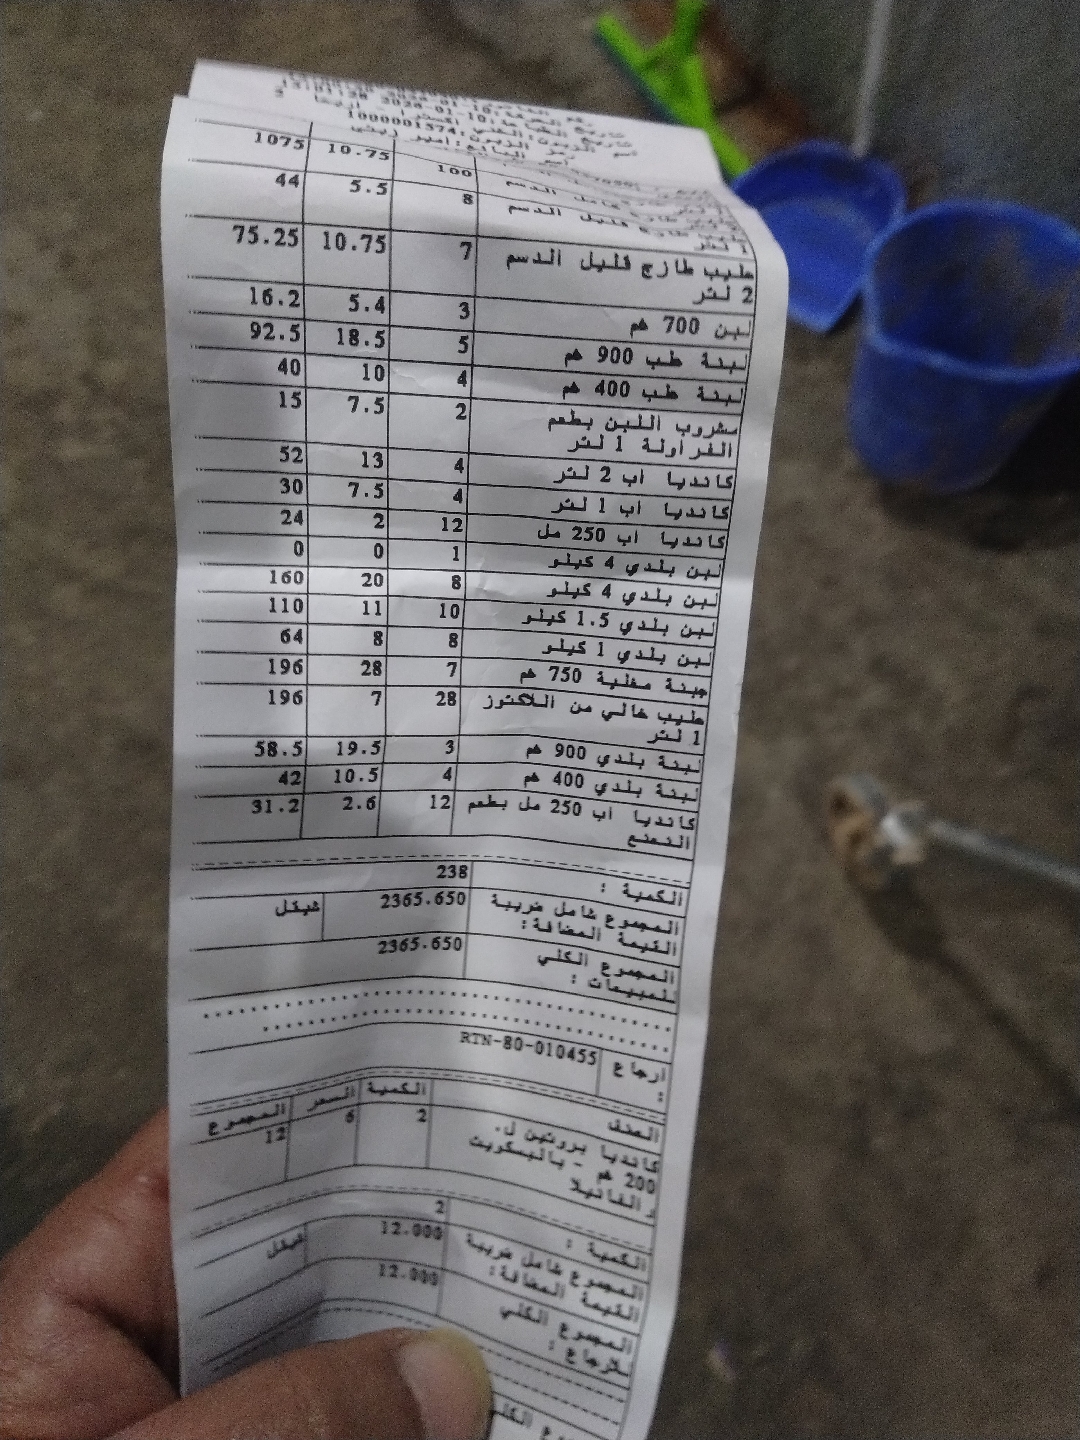 تاريخ الطباعة: 10-01-2026 12:01:28
رمز الزبون: 1000001574
حليب طازج كامل الدسم 100 10.75 1075
حليب طازج قليل الدسم 8 5.5 44
1 لتر
حليب طازج قليل الدسم 7 10.75 75.25
2 لتر
لبن 700 غم 3 5.4 16.2
لبنة طب 900 غم 5 18.5 92.5
لبنة طب 400 غم 4 10 40
مشروب اللبن بطعم 2 7.5 15
الفراولة 1 لتر
كانديا اب 2 لتر 4 13 52
كانديا اب 1 لتر 4 7.5 30
كانديا اب 250 مل 12 2 24
لبن بلدي 4 كيلو 1 0 0
لبن بلدي 4 كيلو 8 20 160
لبن بلدي 1.5 كيلو 10 11 110
لبن بلدي 1 كيلو 8 8 64
جبنة مغلية 750 غم 7 28 196
حليب خالي من اللاكتوز 28 7 196
1 لتر
لبنة بلدي 900 غم 3 19.5 58.5
لبنة بلدي 400 غم 4 10.5 42
كانديا اب 250 مل بطعم 12 2.6 31.2
النعنع
الكمية : 238
المجموع شامل ضريبة 2365.650 شيقل
القيمة المضافة:
المجموع الكلي 2365.650
للمبيعات :
ارجاع RTN-80-010455
:
الصنف الكمية السعر المجموع
كانديا بروتين ل. 2 6 12
200 غم - بالبسكويت
و الفانيلا
الكمية : 2
المجموع شامل ضريبة 12.000 شيقل
القيمة المضافة:
المجموع الكلي 12.000
للارجاع :